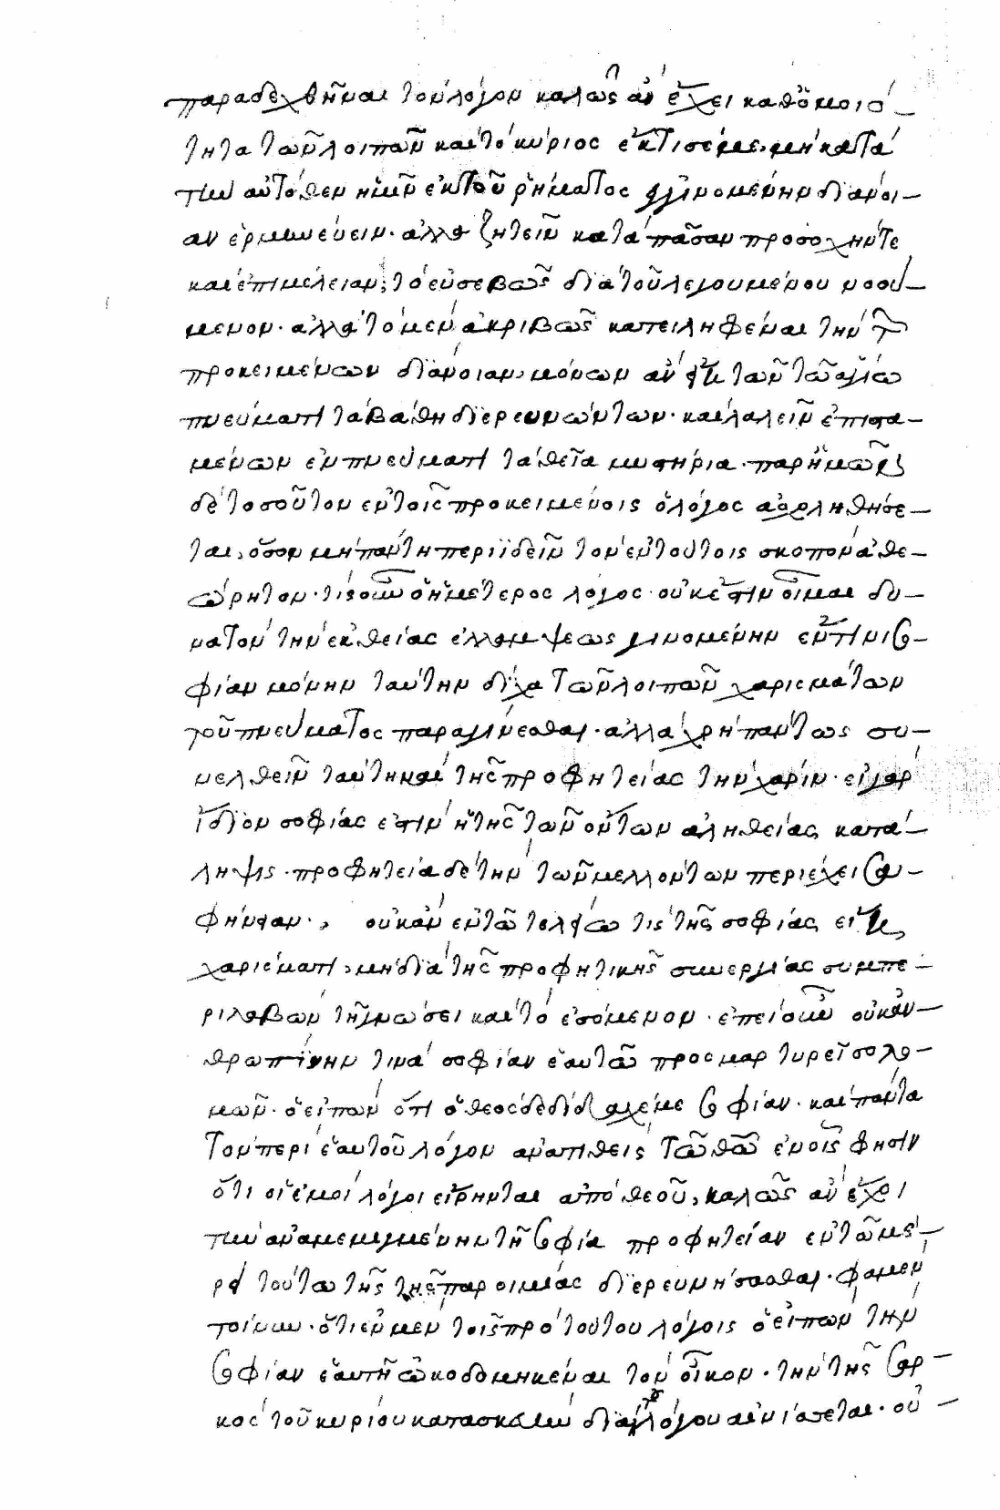 παραδεχθῆναι τὸν λόγον καλῶς ἂν ἔχει καθ' ὁμοιό-
τητα τῶν λοιπῶν καὶ τὸ κύριος ἔκτισέ με. μὴ κατὰ
τὴν αὐτόθεν ἡμῖν ἐκ τοῦ ῥήματος γινομένην διάνοι-
αν ἑρμηνεύειν. ἀλλὰ ζητεῖν κατὰ πᾶσαν προσοχήν τε
καὶ ἐπιμέλειαν, τὸ εὐσεβῶς διὰ τοῦ λεγουμένου νοού-
μενον. ἀλλὰ τὸ μὲν ἀκριβῶς κατειληφέναι τὴν τῶν
προκειμένων διάνοιαν, μόνων ἂν εἴη τῶν τῶ ἁγίω
πνεύματι τὰ βάθη διερευνώντων. καὶ λαλεῖν ἐπιστα-
μένων ἐν πνεύματι τὰ θεῖα μυστήρια. παρ' ἡμῶν
δὲ τοσοῦτον ἐν τοῖς προκειμένοις ὁ λόγος ἀσχοληθήσε-
ται, ὅσον μὴ πάντη περιϊδεῖν τὸν ἐν τούτοις σκοπὸν ἀθε-
ώρητον. τίς οὖν ὁ ἡμέτερος λόγος. οὐκ ἔστιν οἶμαι δυ-
νατὸν τὴν ἐκ θείας ἐλλάμψεως γινομένην ἔν τινι σο-
φίαν μόνην ταύτην δίχα τῶν λοιπῶν χαρισμάτων
τοῦ πνεύματος παραγίνεσθαι. ἀλλὰ χρὴ πάντως συ-
νελθεῖν ταύτη καὶ τῆς προφητείας τὴν χάριν. εἰ γὰρ
ἴδιον σοφίας ἐστὶν ἡ τῆς τῶν ὄντων ἀληθείας κατά-
ληψις. προφητεία δὲ τὴν τῶν μελλόντων περιέχει σα-
φήνειαν., οὐκ ἂν ἐν τῶ τελείω τις τῆς σοφίας εἴη
χαρίσματι, μὴ διὰ τῆς προφητικῆς συνεργίας συμπε-
ριλαβὼν τῆ γνώσει καὶ τὸ ἐσόμενον. ἐπεὶ οὖν οὐκ ἀν-
θρωπίνην τινὰ σοφίαν ἑαυτῶ προσμαρτυρεῖ σολο-
μῶν. ὁ εἰπὼν ὅτι ὁ θεὸς δεδίδαχέ με σοφίαν. καὶ πάντα
τὸν περὶ ἑαυτοῦ λόγον ἀνατιθεὶς τῶ θῶ ἐν οἷς φησὶν
ὅτι οἱ ἐμοὶ λόγοι εἴρηνται ἀπὸ θεοῦ, καλῶς ἂν ἔχοι
τὴν ἀναμεμιγμένην τῆ σοφία προφητείαν ἐν τῶ μέ-
ρει τούτω τῆς τῆς παροιμίας διερευνήσασθαι. φαμὲν
τοίνυν. ὅτι ἐν μὲν τοῖς πρὸ τούτου λόγοις ὁ εἰπὼν τὴν
σοφίαν ἑαυτῆ ὠκοδομηκέναι τὸν οἶκον. τὴν τῆς σαρ-
κὸς τοῦ κυρίου κατασκευὴν διὰ τοῦ λόγου αἰνίσσεται. οὐ